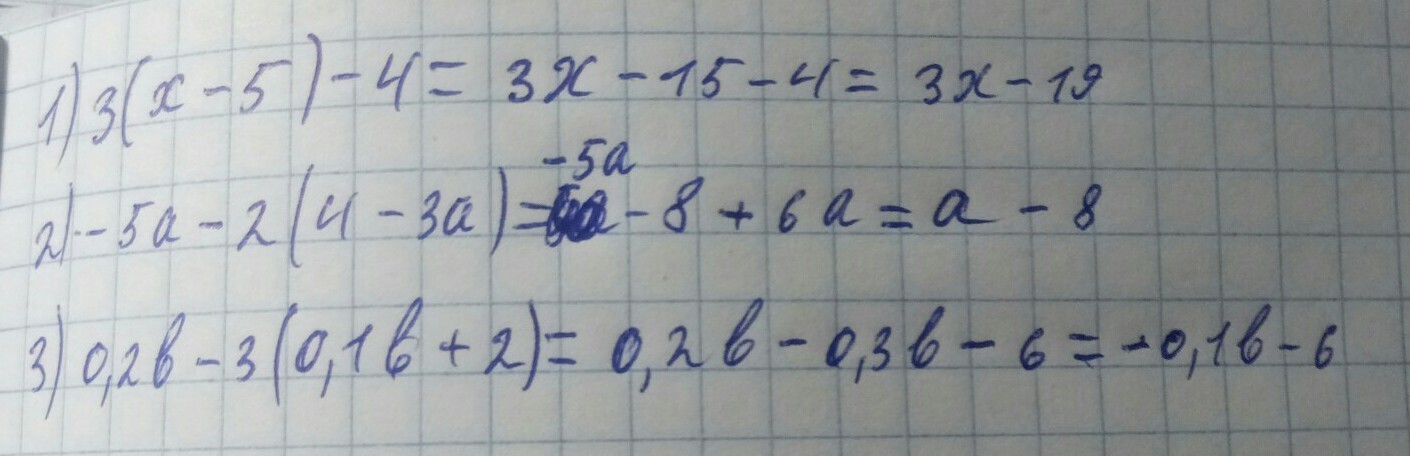 1) 3(x - 5) - 4 = 3x - 15 - 4 = 3x - 19
2) - 5a - 2(4 - 3a) = -5a - 8 + 6a = a - 8
3) 0,2b - 3(0,1b + 2) = 0,2b - 0,3b - 6 = -0,1b - 6